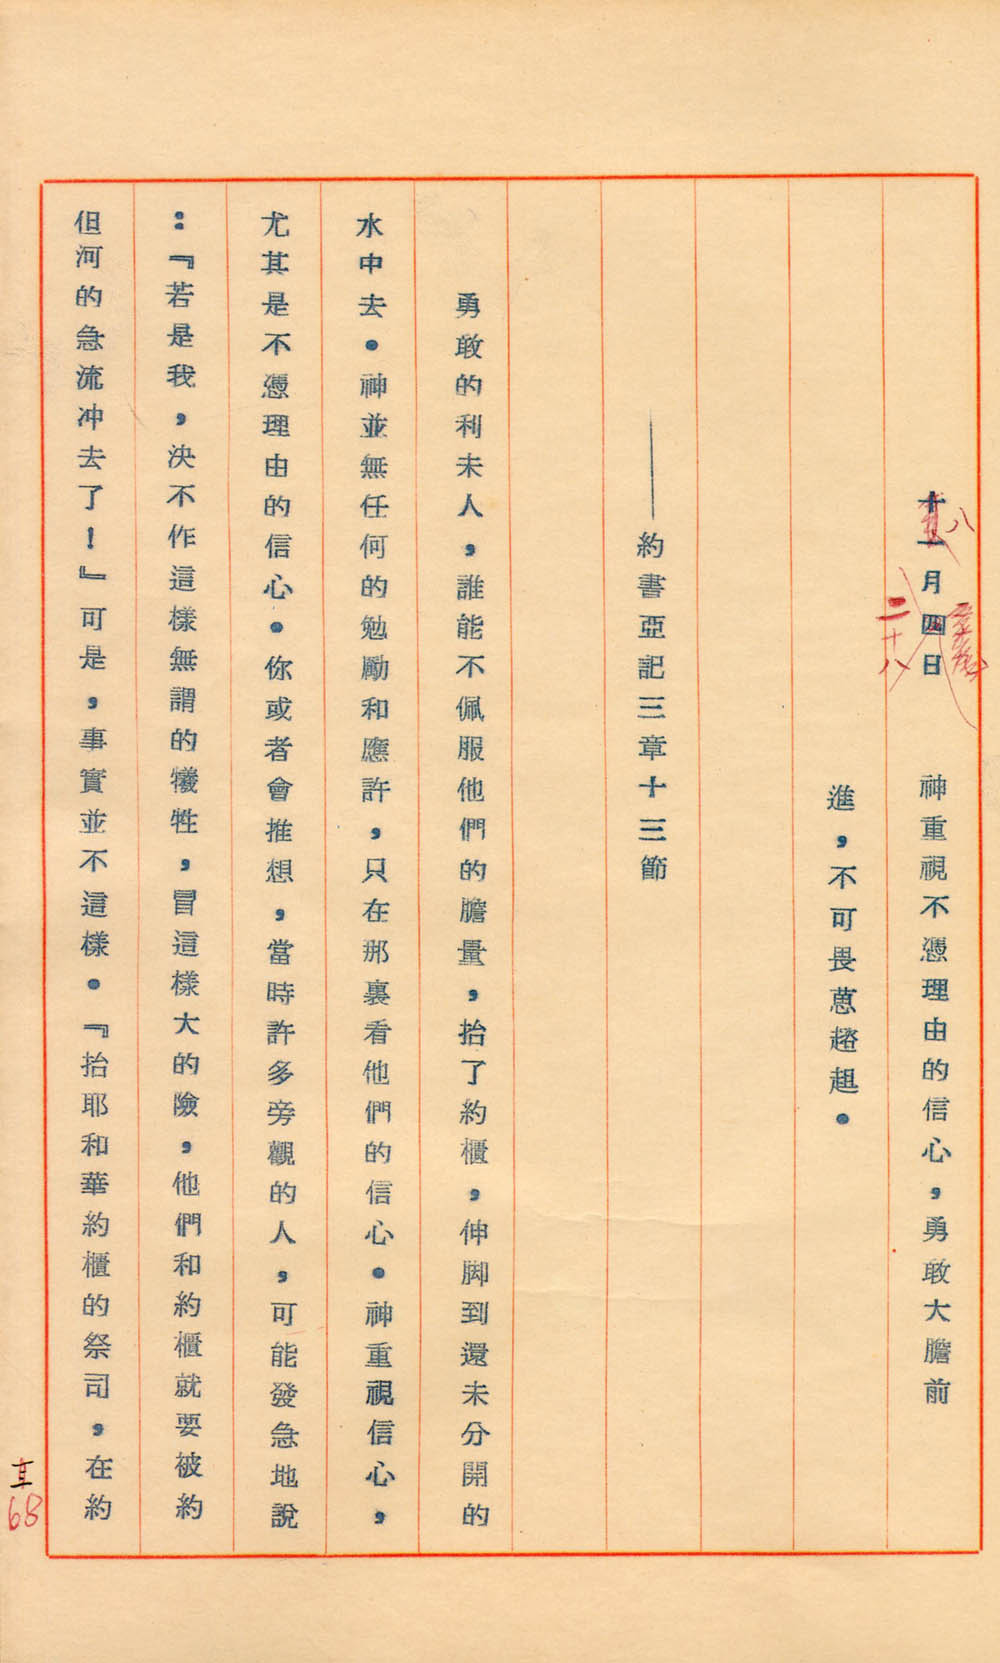 十一月四日 神重視不憑理由的信心，勇敢大膽前
八
二十八
進，不可畏葸趑趄。
——約書亞記三章十三節
勇敢的利未人，誰能不佩服他們的膽量，抬了約櫃，伸脚到還未分開的
水中去。神並無任何的勉勵和應許，只在那裏看他們的信心。神重視信心，
尤其是不憑理由的信心。你或者會推想，當時許多旁觀的人，可能發急地說
：『若是我，決不作這樣無謂的犧牲，冒這樣大的險，他們和約櫃就要被約
但河的急流冲去了！』可是，事實並不這樣。『抬耶和華約櫃的祭司，在約
II
68